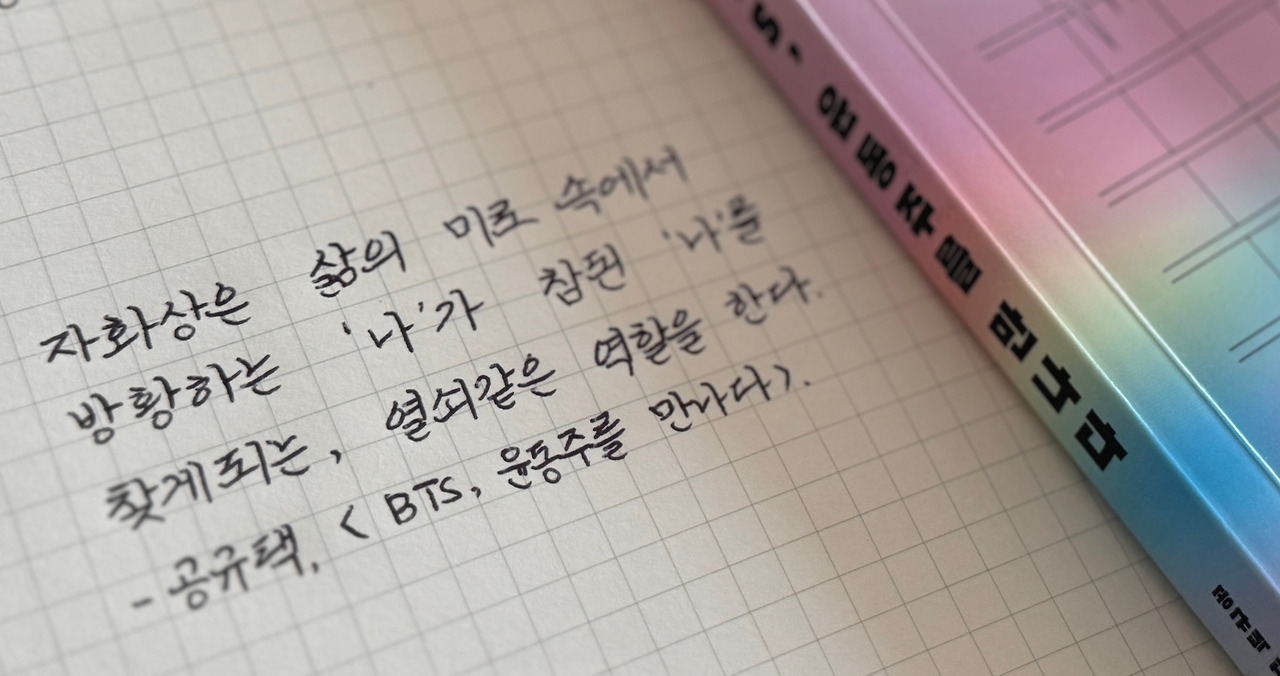 자화상은 삶의 미로 속에서
방황하는 '나'가 참된 '나'를
찾게되는, 열쇠같은 역할을 한다.
- 공규택, < BTS, 윤동주를 만나다>.
S, 윤동주를 만나다